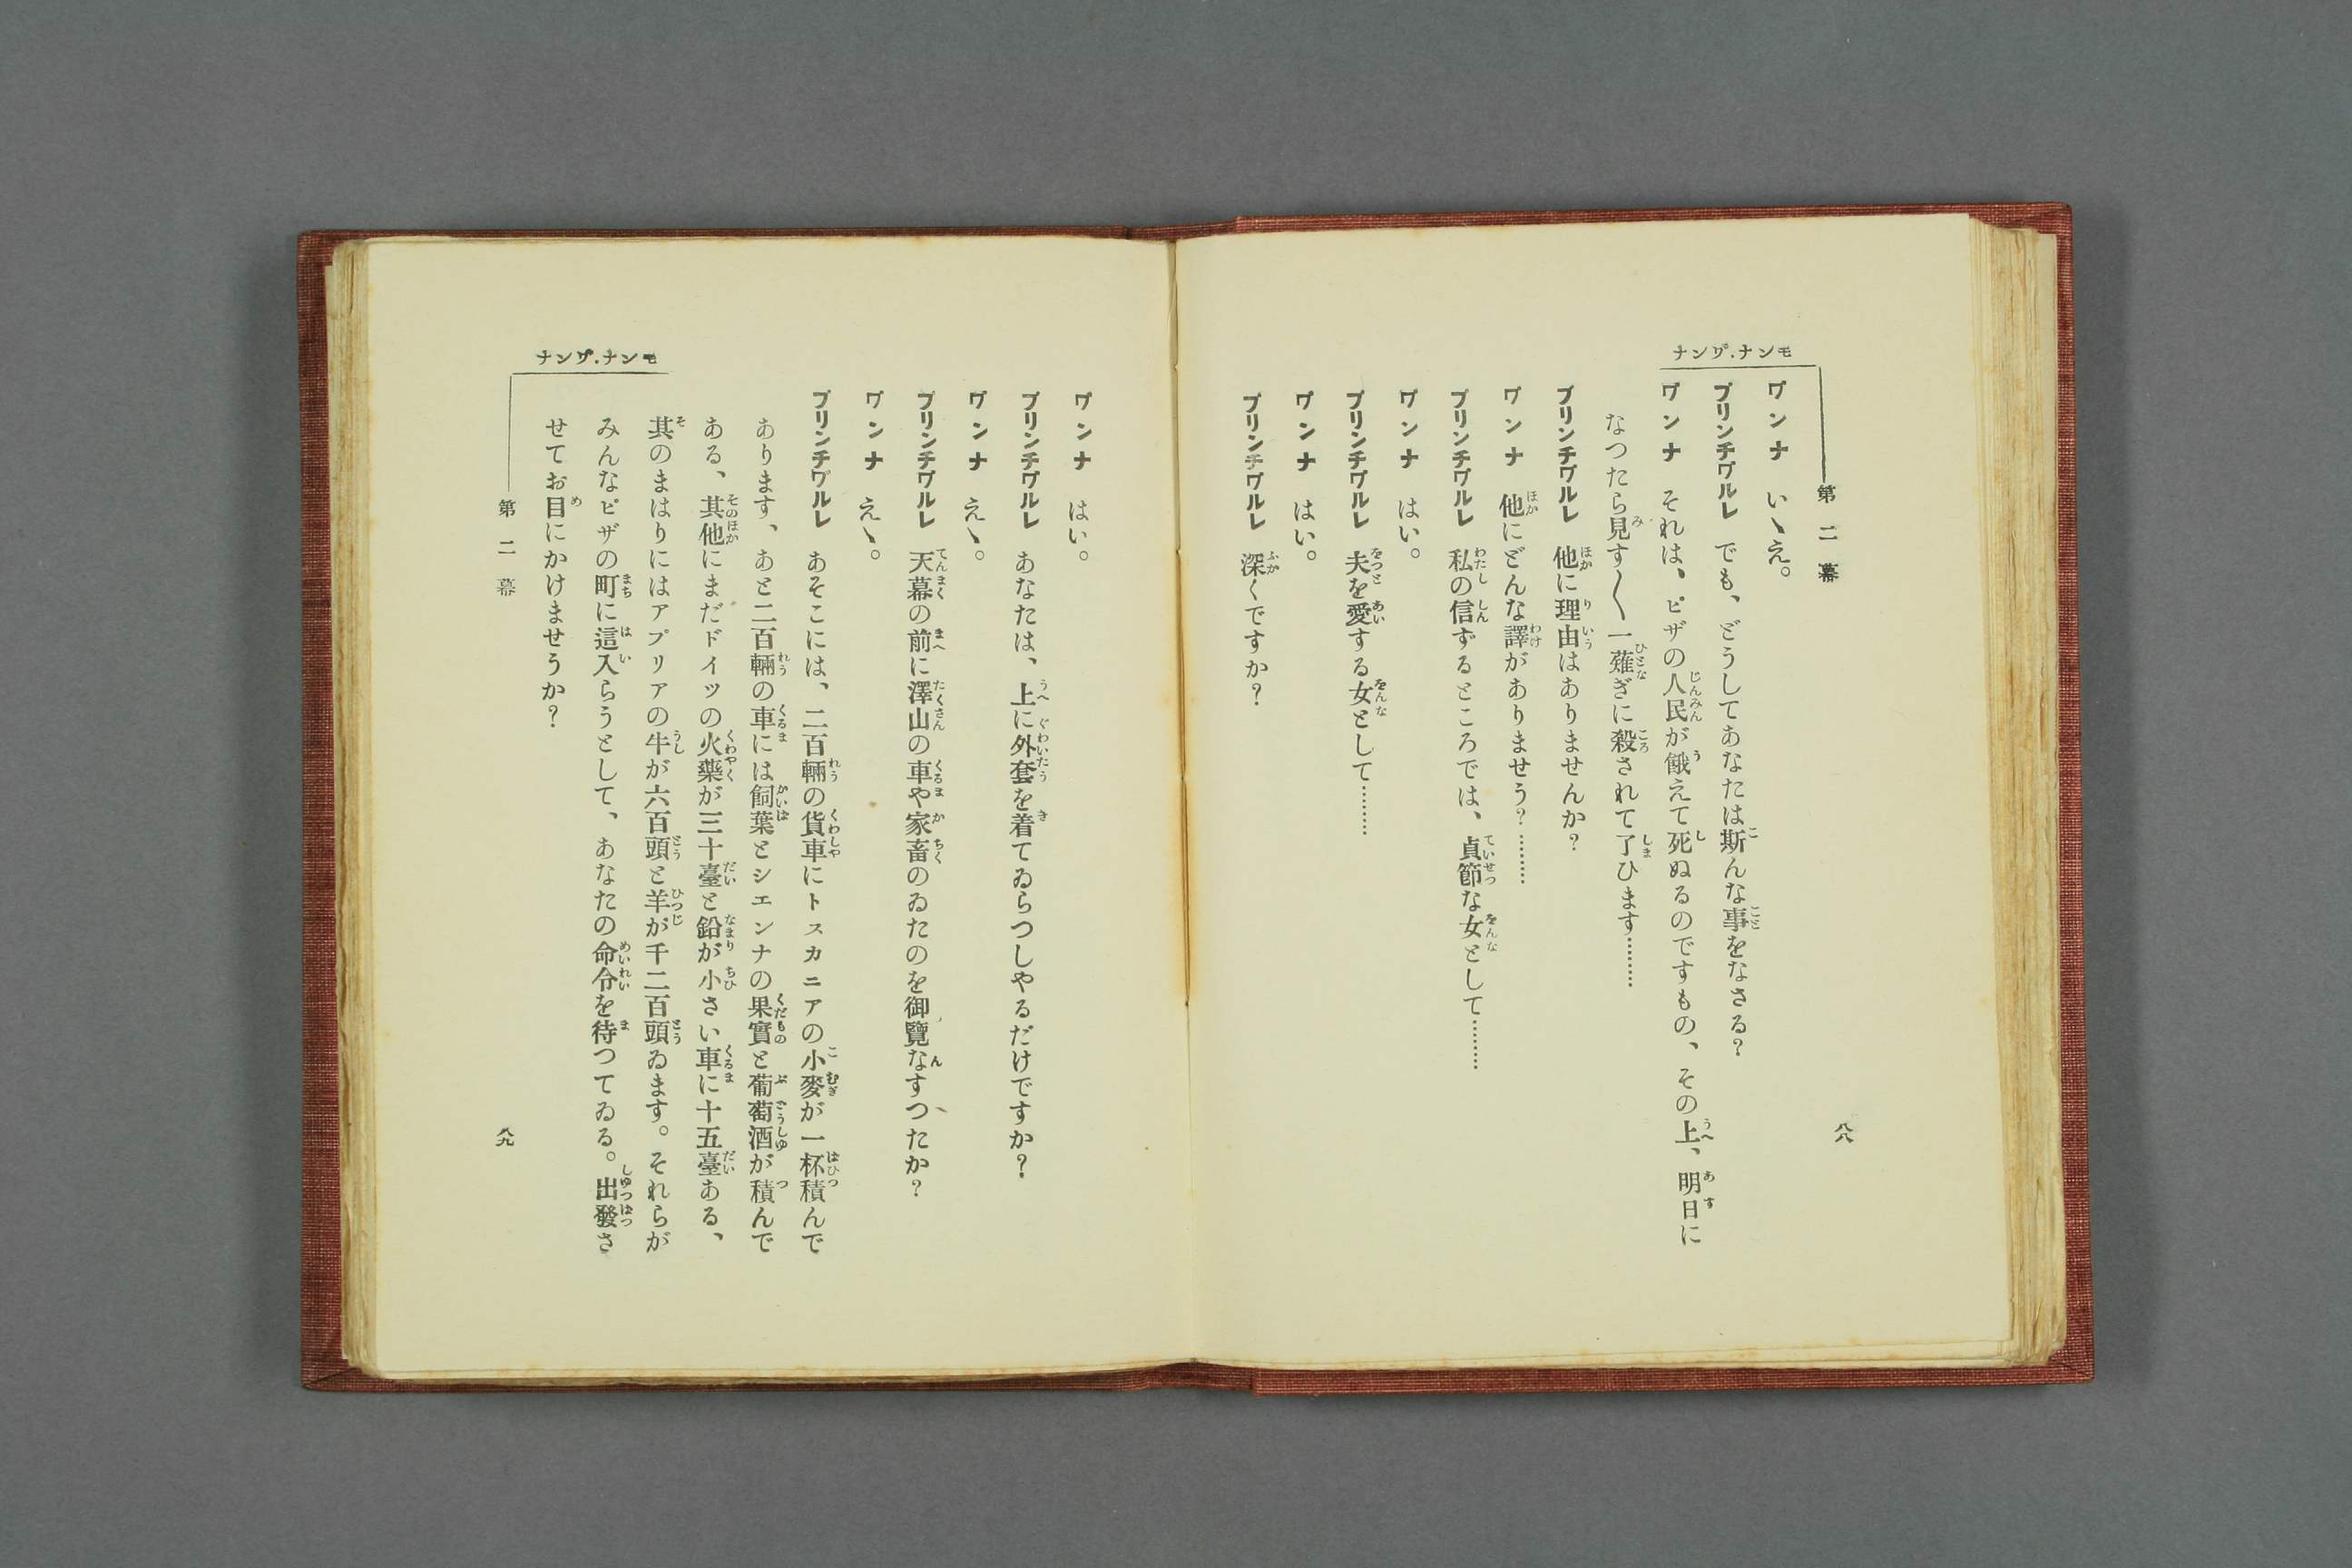 モンナ・ヷンナ
第二幕
八八
ヷンナ いゝえ。
プリンチヷルレ でも、どうしてあなたは斯んな事をなさる?
ヷンナ それは、ピザの人民が餓えて死ぬるのですもの、その上、明日に
なつたら見す〱一薙ぎに殺されて了ひます………
プリンチヷルレ 他に理由はありませんか?
ヷンナ 他にどんな譯がありませう?………
プリンチヷルレ 私の信ずるところでは、貞節な女として………
ヷンナ はい。
プリンチヷルレ 夫を愛する女として………
ヷンナ はい。
プリンチヷルレ 深くですか?
ヷンナ はい。
プリンチヷルレ あなたは、上に外套を着てゐらつしやるだけですか?
ヷンナ えゝ。
プリンチヷルレ 天幕の前に澤山の車や家畜のゐたのを御覽なすつたか?
ヷンナ えゝ。
プリンチヷルレ あそこには、二百輛の貨車にトスカニアの小麥が一杯積んで
あります、あと二百輛の車には飼葉とシエンナの果實と葡萄酒が積んで
ある、其他にまだドイツの火藥が三十臺と鉛が小さい車に十五臺ある、
其のまはりにはアプリアの牛が六百頭と羊が千二百頭ゐます。それらが
みんなピザの町に這入らうとして、あなたの命令を待つてゐる。出發さ
せてお目にかけませうか?
モンナ・ヷンナ
第二幕
八九